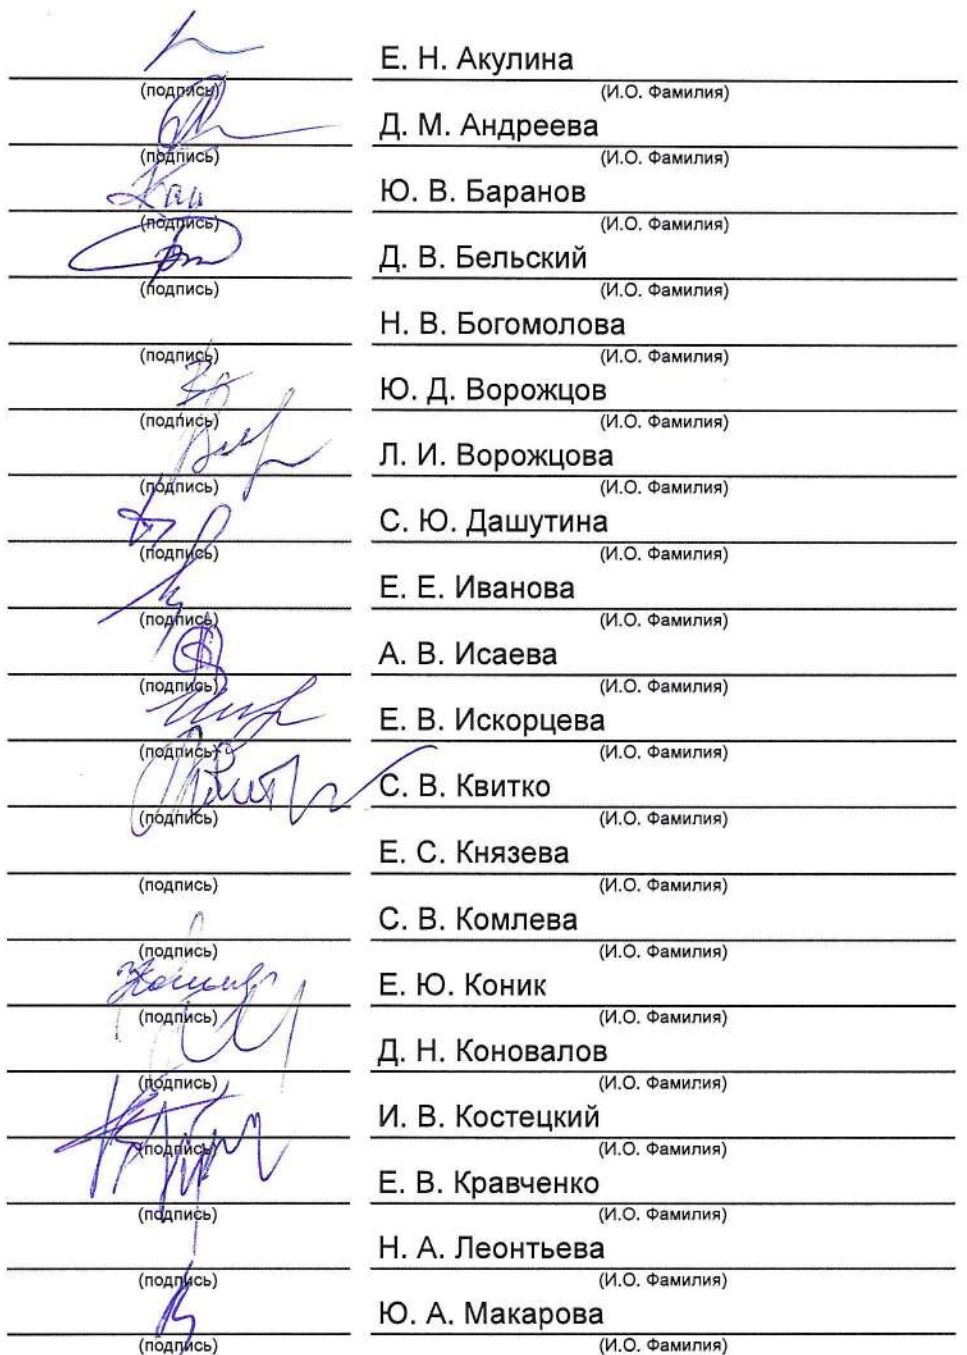 Е. Н. Акулина
(подпись) (И.О. Фамилия)
Д. М. Андреева
(подпись) (И.О. Фамилия)
Ю. В. Баранов
(подпись) (И.О. Фамилия)
Д. В. Бельский
(подпись) (И.О. Фамилия)
Н. В. Богомолова
(подпись) (И.О. Фамилия)
Ю. Д. Ворожцов
(подпись) (И.О. Фамилия)
Л. И. Ворожцова
(подпись) (И.О. Фамилия)
С. Ю. Дашутина
(подпись) (И.О. Фамилия)
Е. Е. Иванова
(подпись) (И.О. Фамилия)
А. В. Исаева
(подпись) (И.О. Фамилия)
Е. В. Искорцева
(подпись) (И.О. Фамилия)
С. В. Квитко
(подпись) (И.О. Фамилия)
Е. С. Князева
(подпись) (И.О. Фамилия)
С. В. Комлева
(подпись) (И.О. Фамилия)
Е. Ю. Коник
(подпись) (И.О. Фамилия)
Д. Н. Коновалов
(подпись) (И.О. Фамилия)
И. В. Костецкий
(подпись) (И.О. Фамилия)
Е. В. Кравченко
(подпись) (И.О. Фамилия)
Н. А. Леонтьева
(подпись) (И.О. Фамилия)
Ю. А. Макарова
(подпись) (И.О. Фамилия)